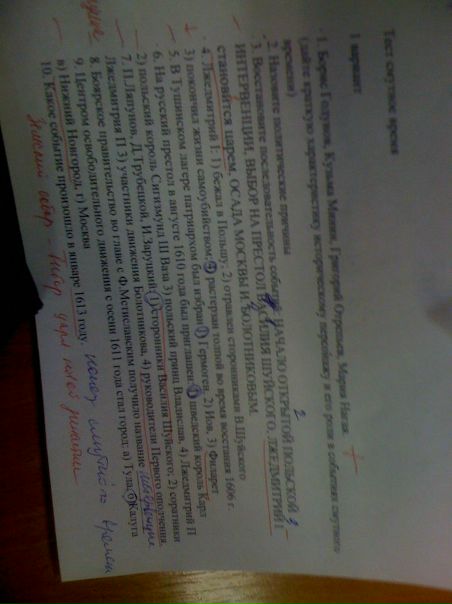 Тест смутное время
1 вариант
1. Борис Годунов, Кузьма Минин, Григорий Отрепьев, Мария Нагая. +
(дайте краткую характеристику историческому персонажу и его роли в событиях смутного
времени)
2. Назовите политические причины
3. Восстановите последовательность событий НАЧАЛО ОТКРЫТОЙ ПОЛЬСКОЙ
ИНТЕРВЕНЦИИ, ВЫБОР НА ПРЕСТОЛ ВАСИЛИЯ ШУЙСКОГО, ЛЖЕДМИТРИЙ I
становится царем, ОСАДА МОСКВЫ И.БОЛОТНИКОВЫМ.
4. Лжедмитрий I: 1) бежал в Польшу, 2) отравлен сторонниками В.Шуйского
3) покончил жизнь самоубийством, 4) растерзан толпою во время восстания 1606 г.
5. В Тушинском лагере патриархом был избран 1) Гермоген, 2) Иов, 3) Филарет
6. На русский престол в августе 1610 года был приглашен 1) шведский король Карл
2) польский король Сигизмунд III Ваза 3) польский принц Владислав, 4) Лжедмитрий II
7. П.Ляпунов, Д.Трубецкой, И.Заруцкий 1) сторонники Василия Шуйского, 2) соратники
Лжедмитрия II 3) участники движения Болотникова, 4) руководители Первого ополчения.
8. Боярское правительство во главе с Ф.Мстиславским получило название
9. Центром освободительного движения с осени 1611 года стал город: а) Тула б) Калуга
в) Нижний Новгород, г) Москва
10. Какое событие произошло в январе 1613 году. конец смутного времени
Земский собор - выбор царя новой династии